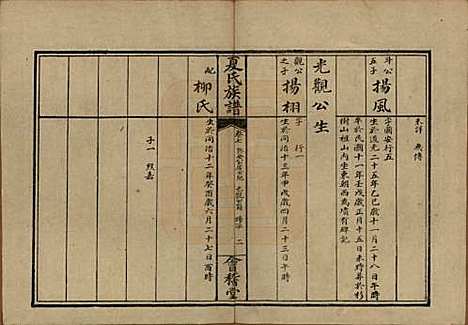 未詳 失傳
斗公
五子
揚風
字國安行五
生於道光二十五年乙巳歲十一月二十八日午時
卒於民國十一年壬戌歲正月十五日未時葬於杉
樹山祖山內坐東朝西為墳有碑記
光觀公生
觀公
之子
揚栩
字 行一
生於同治十三年甲戌歲四月二十三日午時
夏氏族譜
會稽堂
配
柳氏
生於同治十二年癸酉歲六月二十七日酉時
子一 烈嘉